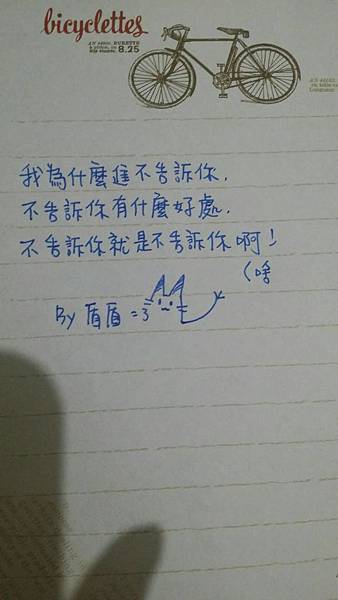 bicyclettes
8.25
我為什麼進不告訴你,
不告訴你有什麼好處,
不告訴你就是不告訴你啊!
(啥
By 盾盾 =3